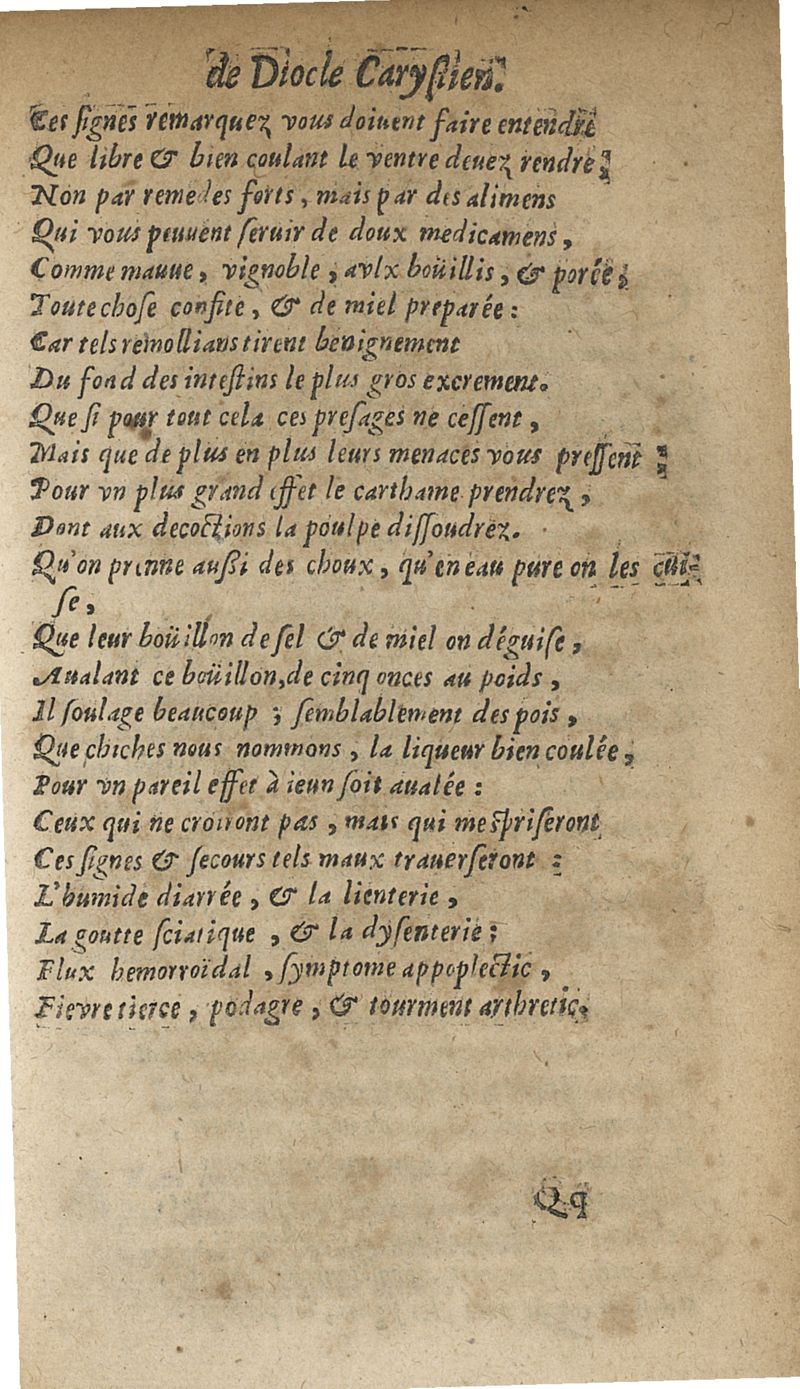 de Diocle Caryſtien.
Ces ſignes remarquez vous doiuent faire entendre
Que libre & bien coulant le ventre deuez rendre;
Non par remedes forts, mais par des alimens
Qui vous peuuent ſeruir de doux medicamens,
Comme mauue, vignoble, aulx boüillis, & porée;
Toute choſe confite, & de miel preparée:
Car tels remollians tirent benignement
Du fond des inteſtins le plus gros excrement.
Que ſi pour tout cela ces preſages ne ceſſent,
Mais que de plus en plus leurs menaces vous preſſent:
Pour vn plus grand effet le carthame prendrez,
Dont aux decoctions la poulpe diſſoudrez.
Qu'on prenne auſſi des choux, qu'en eau pure on les cui-
ſe,
Que leur boüillon de ſel & de miel on déguiſe,
Aualant ce boüillon, de cinq onces au poids,
Il ſoulage beaucoup; ſemblablement des pois,
Que chiches nous nommons, la liqueur bien coulée,
Pour vn pareil effet à ieun ſoit aualée:
Ceux qui ne croiront pas, mais qui meſpriſeront
Ces ſignes & ſecours tels maux trauerſeront:
L'humide diarrée, & la lienterie,
La goutte ſciatique, & la dyſenterie;
Flux hemorroïdal, ſymptome appoplectic,
Fievre tierce, podagre, & tourment arthretic.
Qq